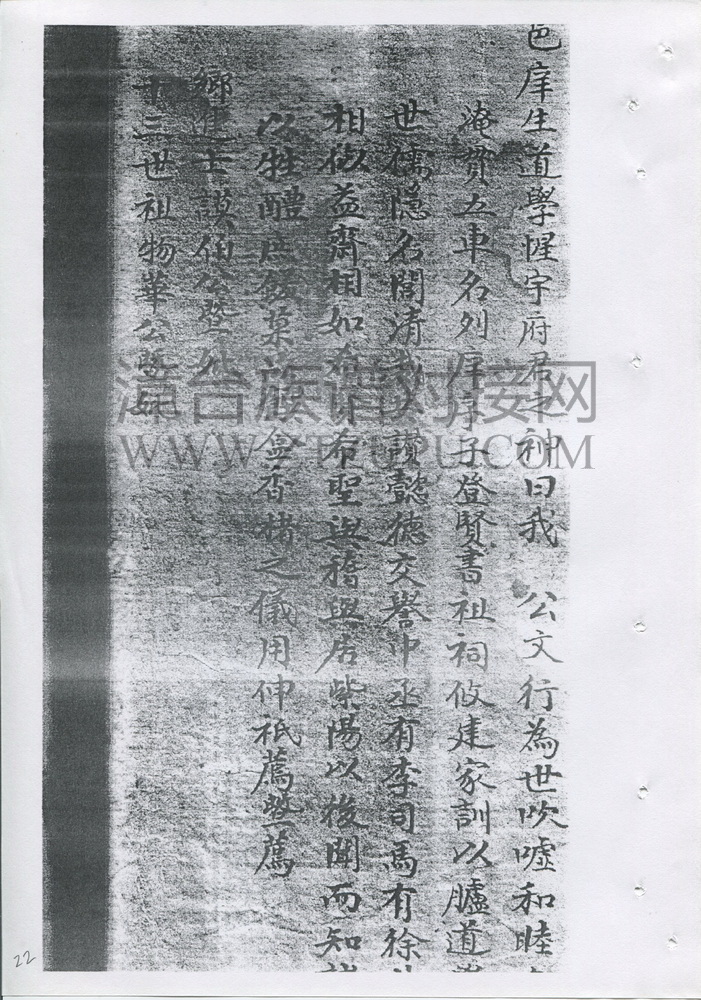 邑庠生道學惺宇府君之神曰我 公文行為世吹噓和睦
淹貫五車名列庠序子登賢書祖祠攸建家訓以臚道
世儒隱名閣清 讚懿德交譽中丞有李司馬有徐
相傲益齋相如希 希聖與稽與居紫陽以後聞而知
以牲醴庶饈菓 盒香楮之儀用伸祇薦暨薦
鄉進士謨伯公暨妣
十三世祖物華公暨妣
漳台族谱对接网
WWW.ZTZUPU.COM
22